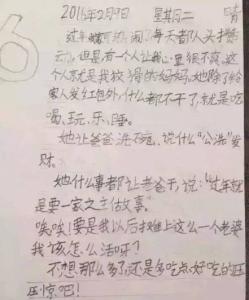 2016年2月9日 星期二 晴
过年好可热闹了每天都人头攒
云,但是有一个人让我心里很不爽,这
个人就是我狡猾的妈妈,她除了给
家人发红包外,什么都不干了,就是吃
喝、玩、乐、睡。
她让爸爸洗碗,说什么“公洗”发
财。
她什么事都让老爸干,说:“过年就
是要一家之主做家事。”
唉唉!要是我以后找难上这么一个老婆
我该怎么活呀?
不想那么多了还是多吃点好吃的压
压惊吧!
6